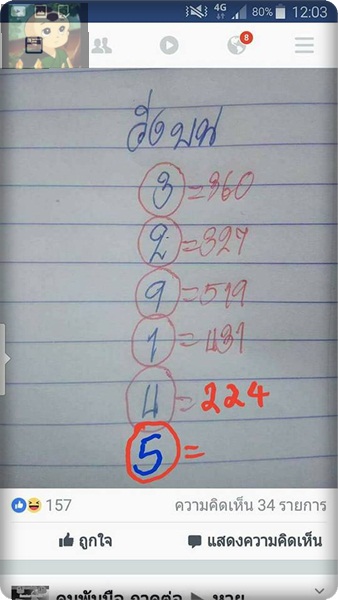 4G 80% 12:03
8
วิ่งบน
3 = 360
2 = 327
9 = 519
1 = 431
4 = 224
5 =
157 ความคิดเห็น 34 รายการ
ถูกใจ แสดงความคิดเห็น